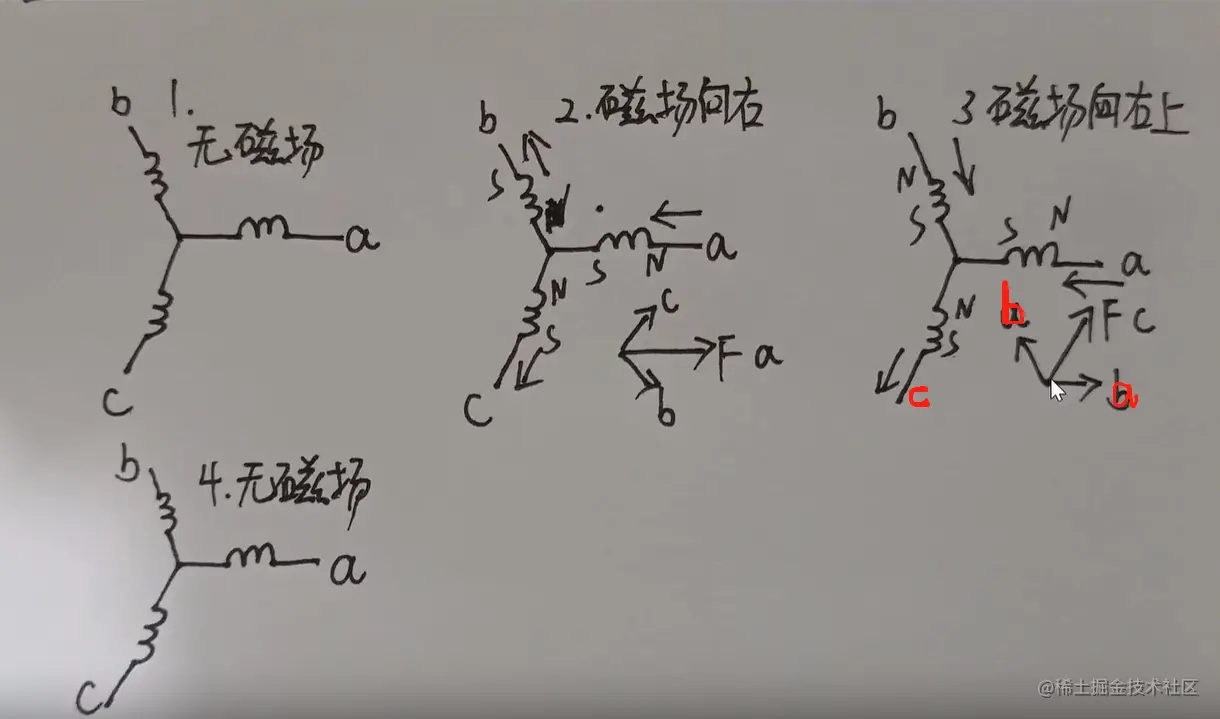 b
1.
无磁场
a
c
b
2.磁场向右
S
N
a
S
N
N
S
c
c
F a
b
b
3 磁场向右上
N
S
S
N
a
N
S
b
F c
c
a
b
4.无磁场
a
c
@稀土掘金技术社区